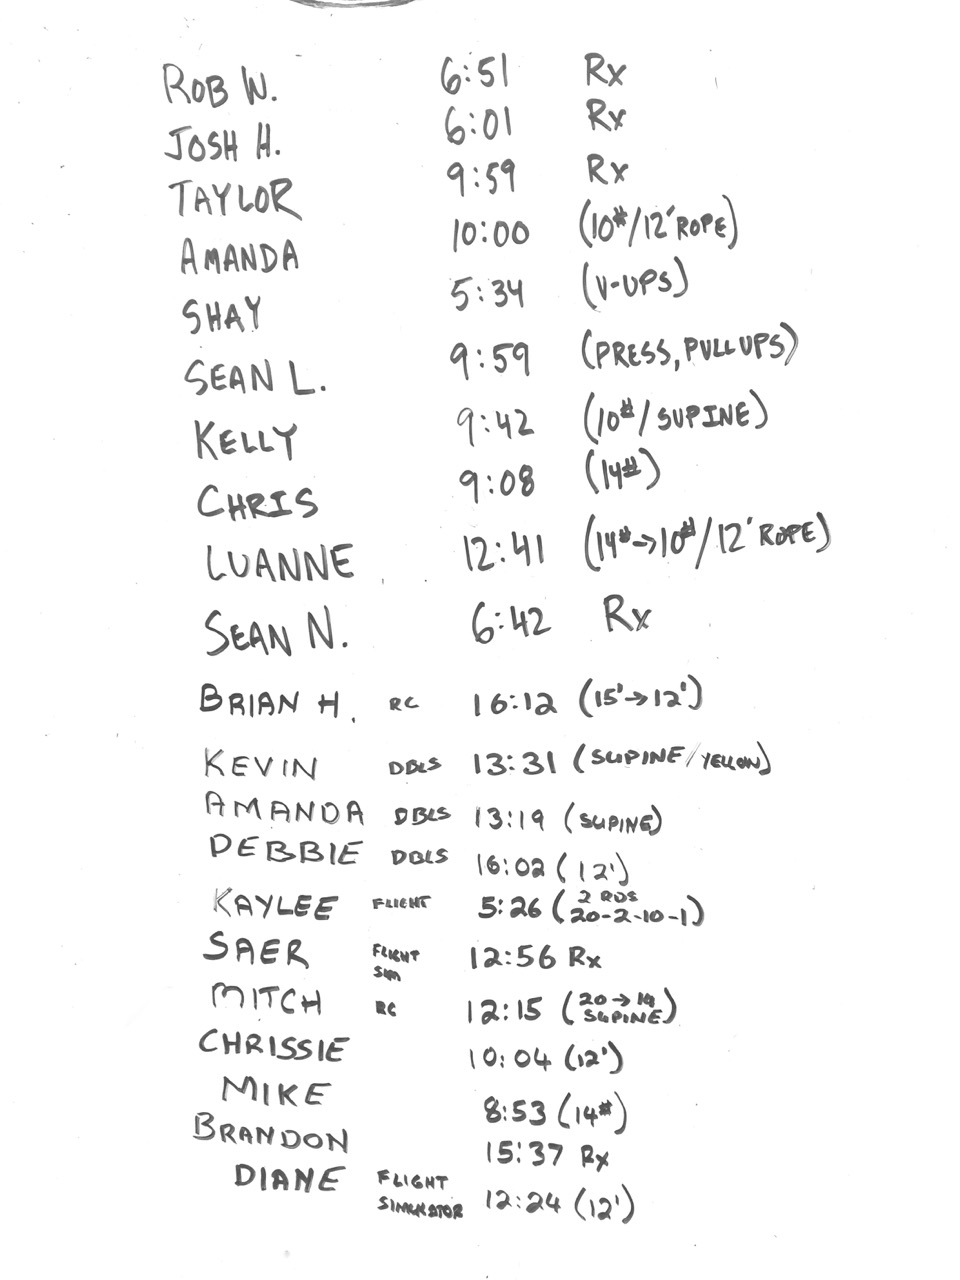 ROB W. 6:51 Rx
JOSH H. 6:01 Rx
TAYLOR 9:59 Rx
AMANDA 10:00 (10#/12' ROPE)
SHAY 5:34 (V-UPS)
SEAN L. 9:59 (PRESS, PULL UPS)
KELLY 9:42 (10#/SUPINE)
CHRIS 9:08 (14#)
LUANNE 12:41 (14#→10#/12' ROPE)
SEAN N. 6:42 Rx
BRIAN H. RC 16:12 (15'→12')
KEVIN DBLS 13:31 (SUPINE/YELLOW)
AMANDA DBLS 13:19 (SUPINE)
DEBBIE DBLS 16:02 (12')
KAYLEE FLIGHT 5:26 (2 RDS
20-2-10-1)
SAER FLIGHT
SIM 12:56 Rx
MITCH RC 12:15 (20→14
SUPINE)
CHRISSIE 10:04 (12')
MIKE 8:53 (14#)
BRANDON 15:37 Rx
DIANE FLIGHT
SIMULATOR 12:24 (12')